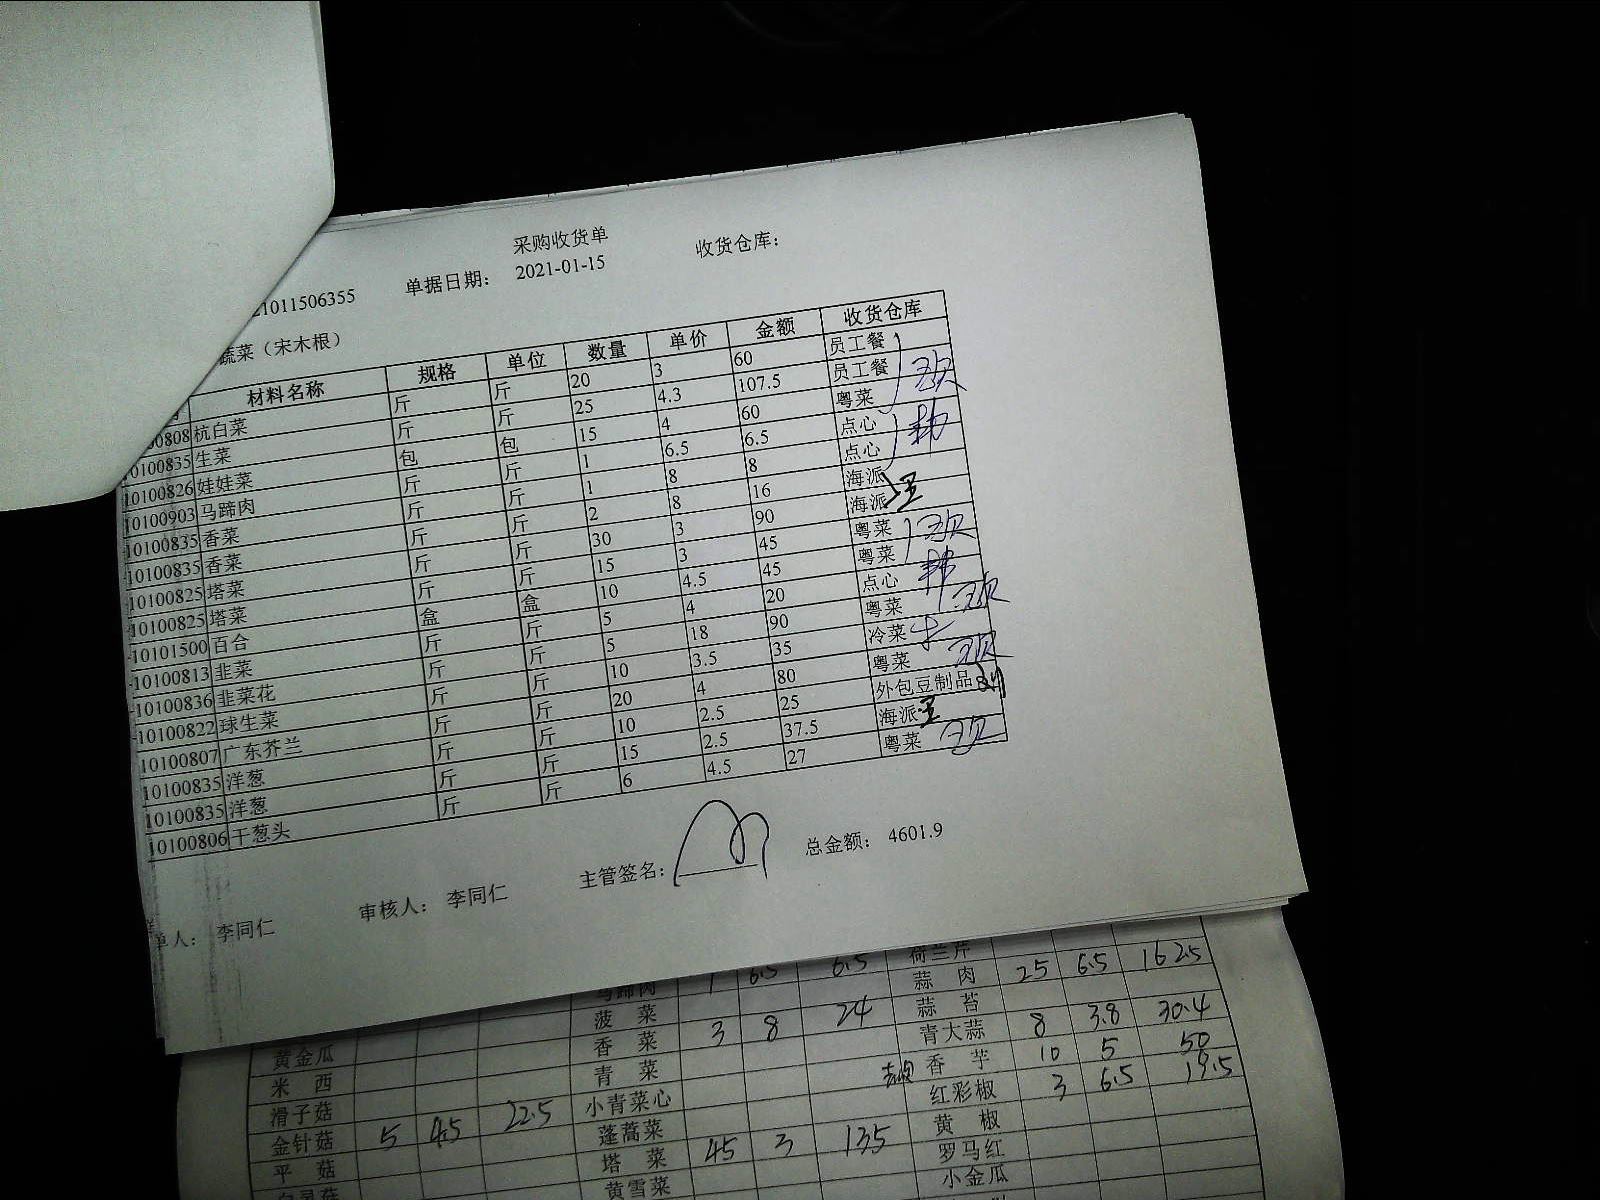 采购收货单
21011506355 单据日期： 2021-01-15 收货仓库：
蔬菜（宋木根）
材料名称 规格 单位 数量 单价 金额 收货仓库
00808 杭白菜 斤 斤 20 3 60 员工餐
10100835 生菜 斤 斤 25 4.3 107.5 员工餐
10100826 娃娃菜 包 包 15 4 60 粤菜
10100903 马蹄肉 斤 斤 1 6.5 6.5 点心
10100835 香菜 斤 斤 1 8 8 点心
10100835 香菜 斤 斤 2 8 16 海派
10100825 塔菜 斤 斤 30 3 90 海派
10100825 塔菜 斤 斤 15 3 45 粤菜
10101500 百合 盒 盒 10 4.5 45 粤菜
10100813 韭菜 斤 斤 5 4 20 点心
10100836 韭菜花 斤 斤 5 18 90 粤菜
10100822 球生菜 斤 斤 10 3.5 35 冷菜
10100807 广东芥兰 斤 斤 20 4 80 粤菜
10100835 洋葱 斤 斤 10 2.5 25 外包豆制品
10100835 洋葱 斤 斤 15 2.5 37.5 海派
10100806 干葱头 斤 斤 6 4.5 27 粤菜
单人： 李同仁 审核人： 李同仁 主管签名： 总金额： 4601.9
马蹄肉 1 6.5 6.5 荷兰芹
黄金瓜 菠菜 蒜肉 25 6.5 162.5
米西 香菜 3 8 24 蒜苔
滑子菇 青菜 青大蒜 8 3.8 30.4
金针菇 5 4.5 22.5 小青菜心 香芋 10 5 50
平菇 蓬蒿菜 红彩椒 3 6.5 19.5
白灵菇 塔菜 45 3 135 黄椒
黄雪菜 罗马红
小金瓜